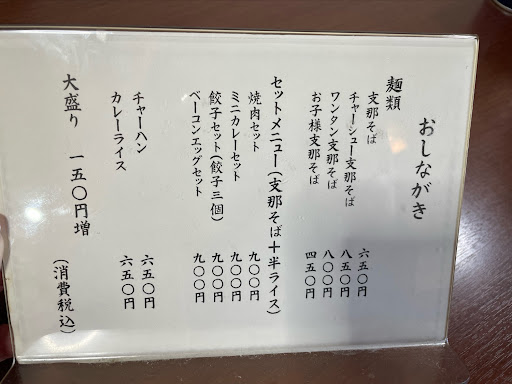 おしながき
麺類
支那そば 六五〇円
チャーシュー支那そば 八五〇円
ワンタン支那そば 八〇〇円
お子様支那そば 四五〇円
セットメニュー(支那そば+半ライス)
焼肉セット 九〇〇円
ミニカレーセット 九〇〇円
餃子セット(餃子三個) 九〇〇円
ベーコンエッグセット 九〇〇円
チャーハン 六五〇円
カレーライス 六五〇円
大盛り 一五〇円増
(消費税込)